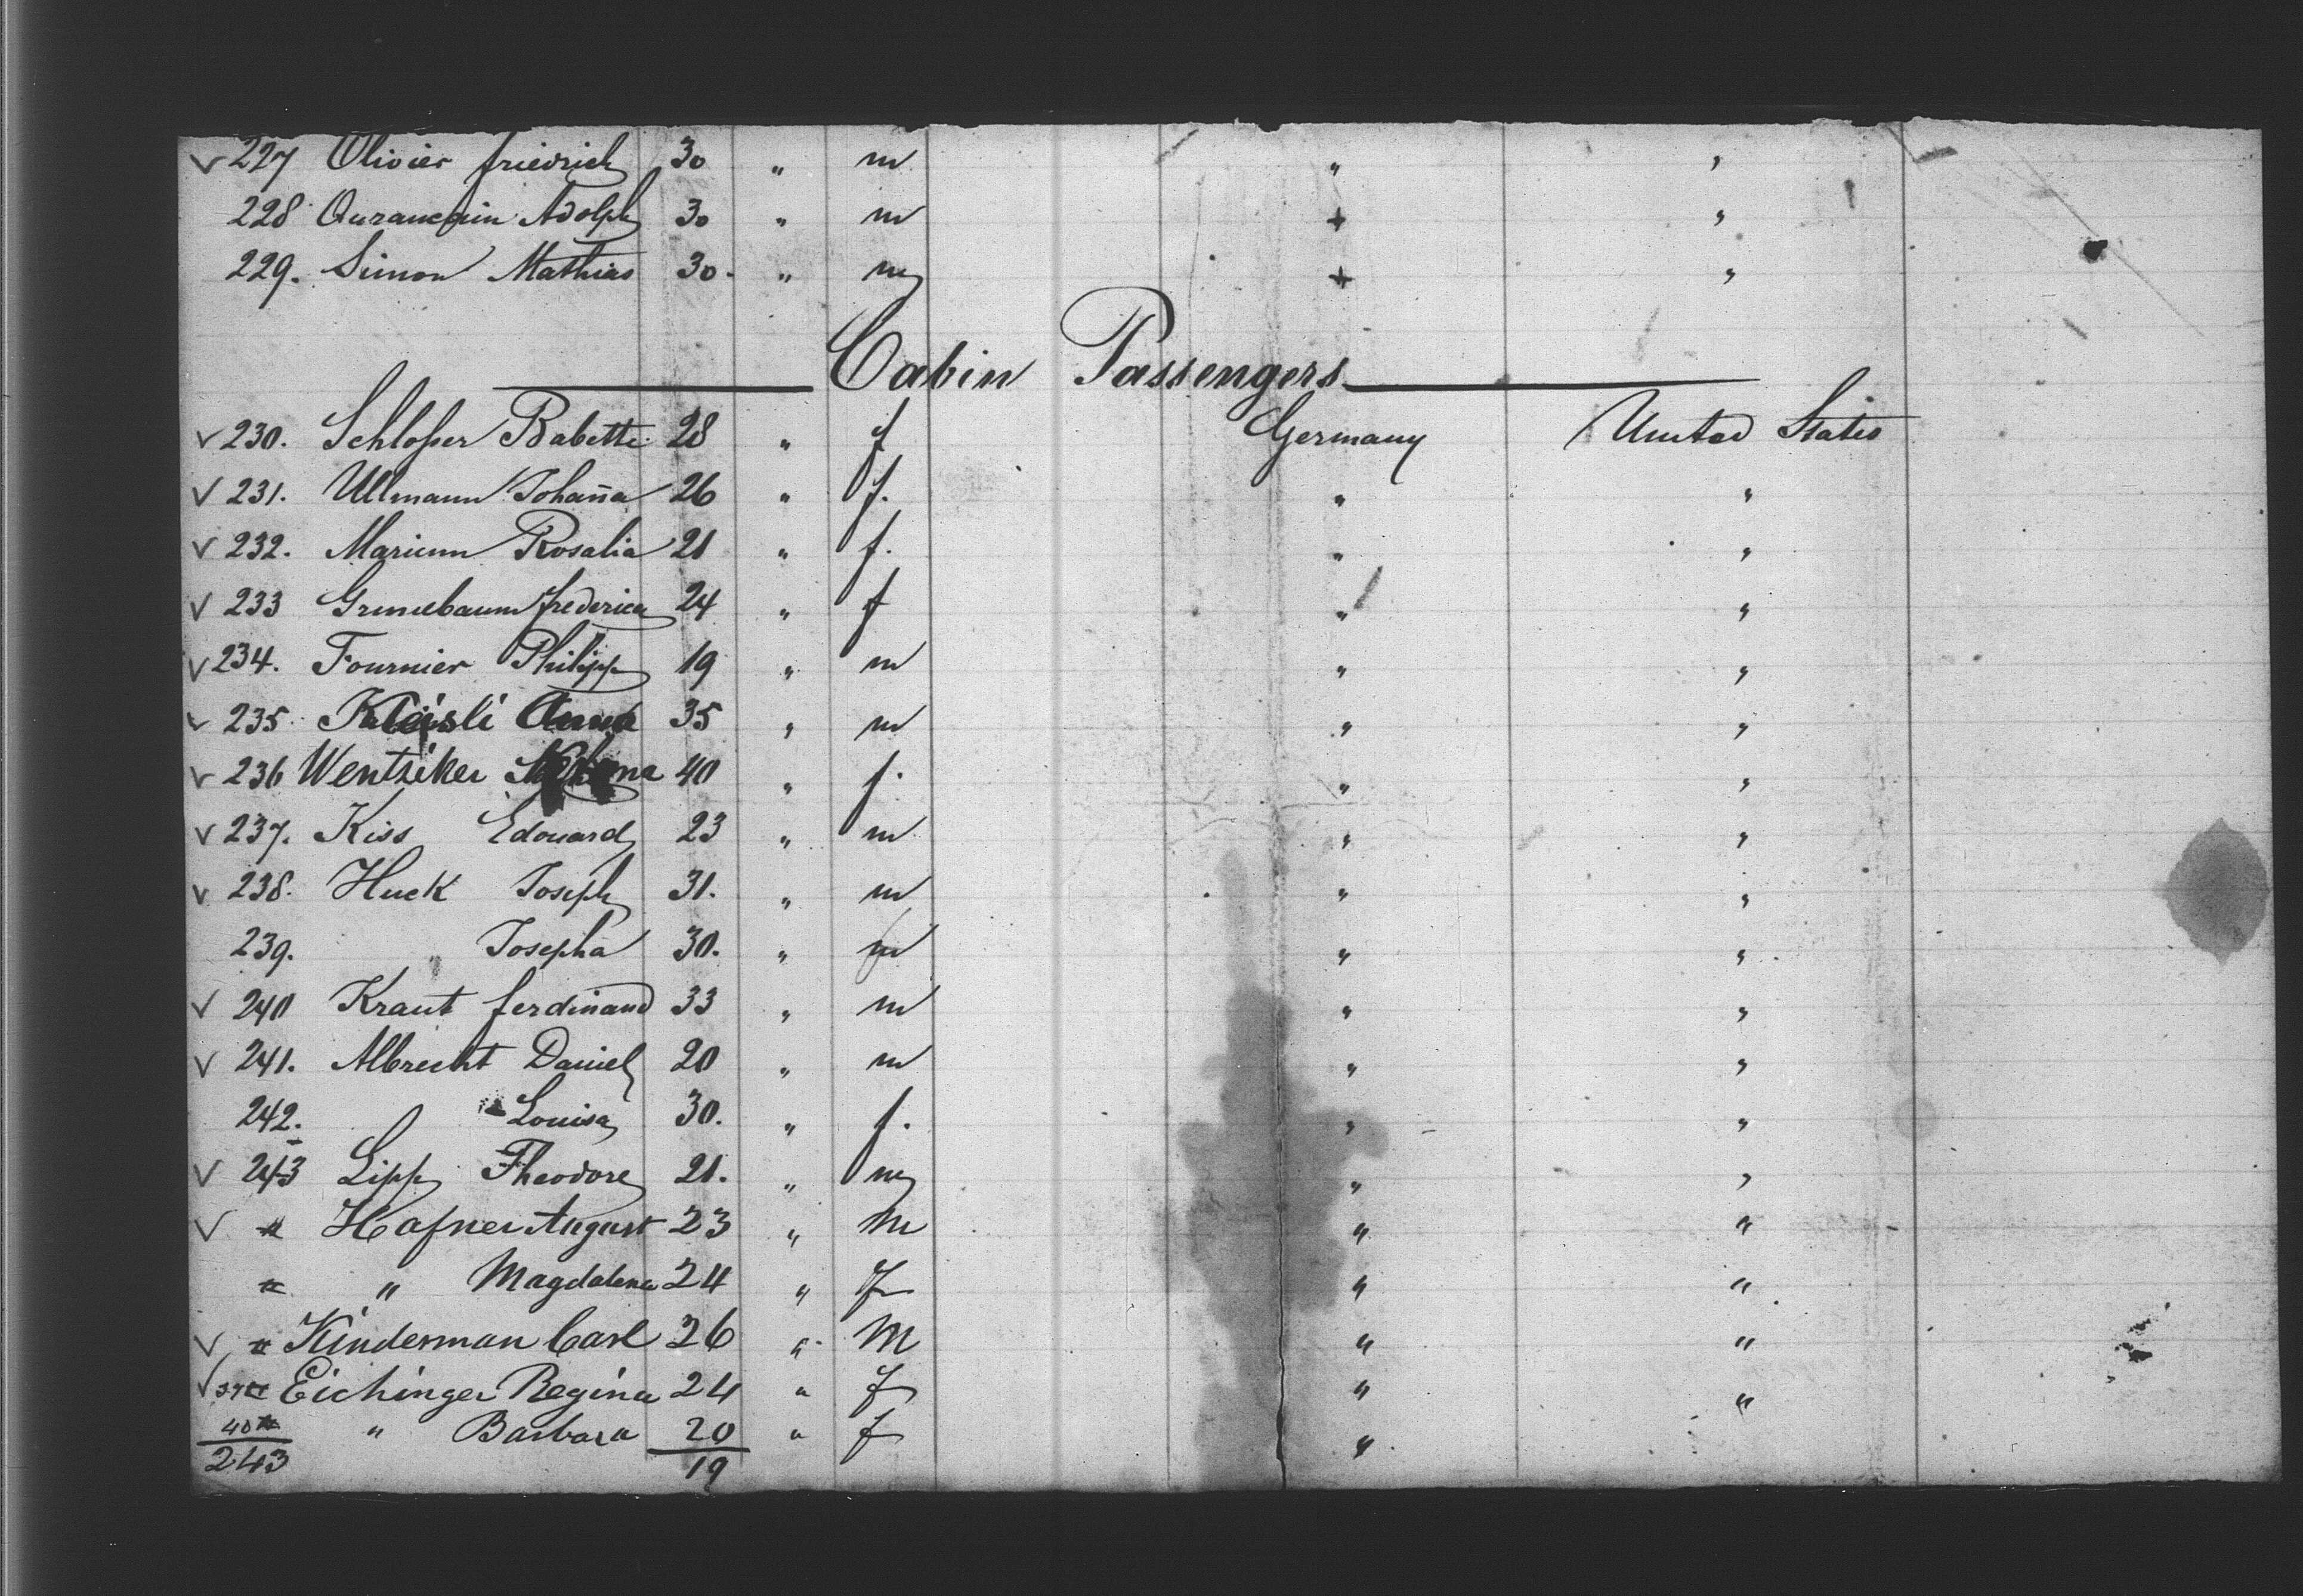 ✓ 227 Olivier friedrich 30 " m " "
228 Adolph 30 " m + "
229. Simon Mathias 30. " m + "
Cabin Passengers
✓ 230. Schloßer Babette 28 " f Germany United States
✓ 231. Ullmann Johan̄a 26 " f. " "
✓ 232. Rosalia 21 " f. " "
✓ 233 frederica 24 " f " "
✓ 234. Fournier Philipp 19 " m " "
✓ 235 35 " m " "
✓ 236 Wentziker 40 " f. " "
✓ 237. Kiss Edouard 23 " m " "
✓ 238. Huck Joseph 31. " m " "
239. " Josepha 30. " " "
✓ 240 Kraut ferdinand 33 " m " "
✓ 241. Albrecht Daniel 20 " m " "
242. " Louisa 30. " f. " "
✓ 243 Lipp Theodore 21. " m " "
✓ " Hafner August 23 " M " "
" " Magdalena 24 " f " "
✓ " Kinderman Carl 26 " M " "
✓ 39 " Eichinger Regina 24 " f " "
40 " " Barbara 20 " f "
243 19